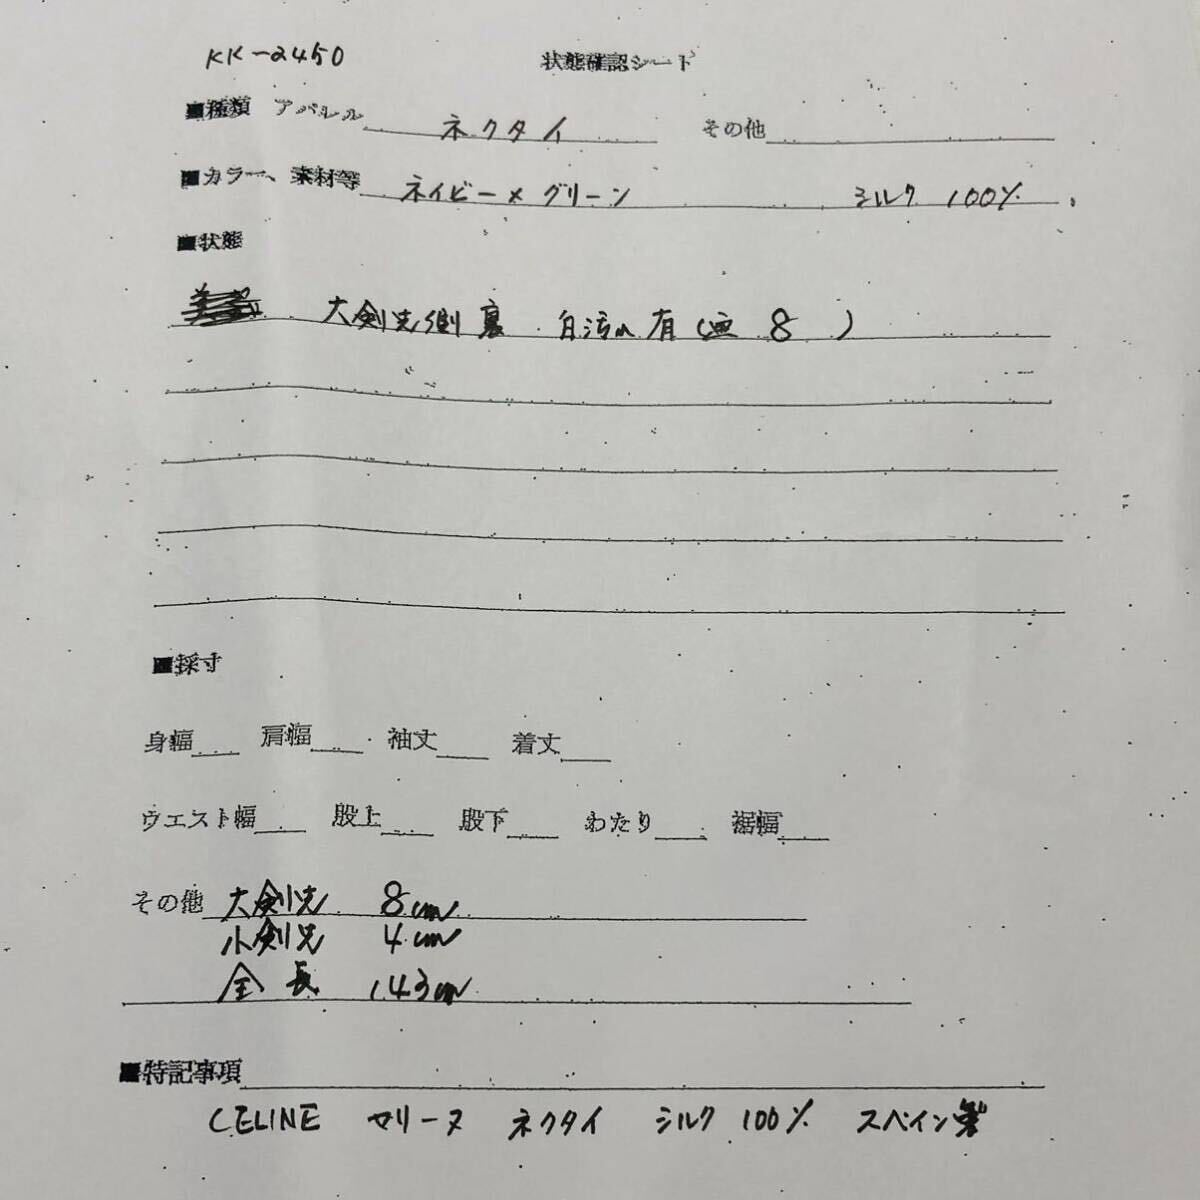 KK-2450 状態確認シート
■種類 アパレル ネクタイ その他
■カラー、素材等 ネイビー×グリーン シルク 100%
■状態
大剣先側裏 白汚れ有(画 8 )
■採寸
身幅 肩幅 袖丈 着丈
ウエスト幅 股上 股下 わたり 裾幅
その他 大剣先 8cm
小剣先 4cm
全長 143cm
■特記事項
CELINE セリーヌ ネクタイ シルク 100% スペイン製